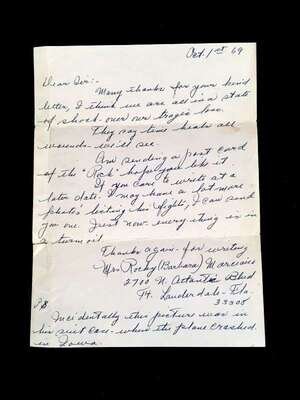 Oct 1st 69
Dear Sir:-
Many thanks for your kind
letter, I think we are all in a state
of shock over our tragic loss.
They say time heals all
wounds - we'll see.
Am sending a post card
of the "Rock" hope you like it
If you care to write at a
later date. I may have a lot more
photo's listing his fights, I can send
you one. Just now everything is in
a turmoil
Thanks again - for writing
Mrs Rocky (Barbara) Marciano
2700 N. Atlantic Blvd
Ft. Lauderdale - Fla.
33308
P.S.
Incidentally this picture was in
his suit case - when the plane crashed
in Iowa.